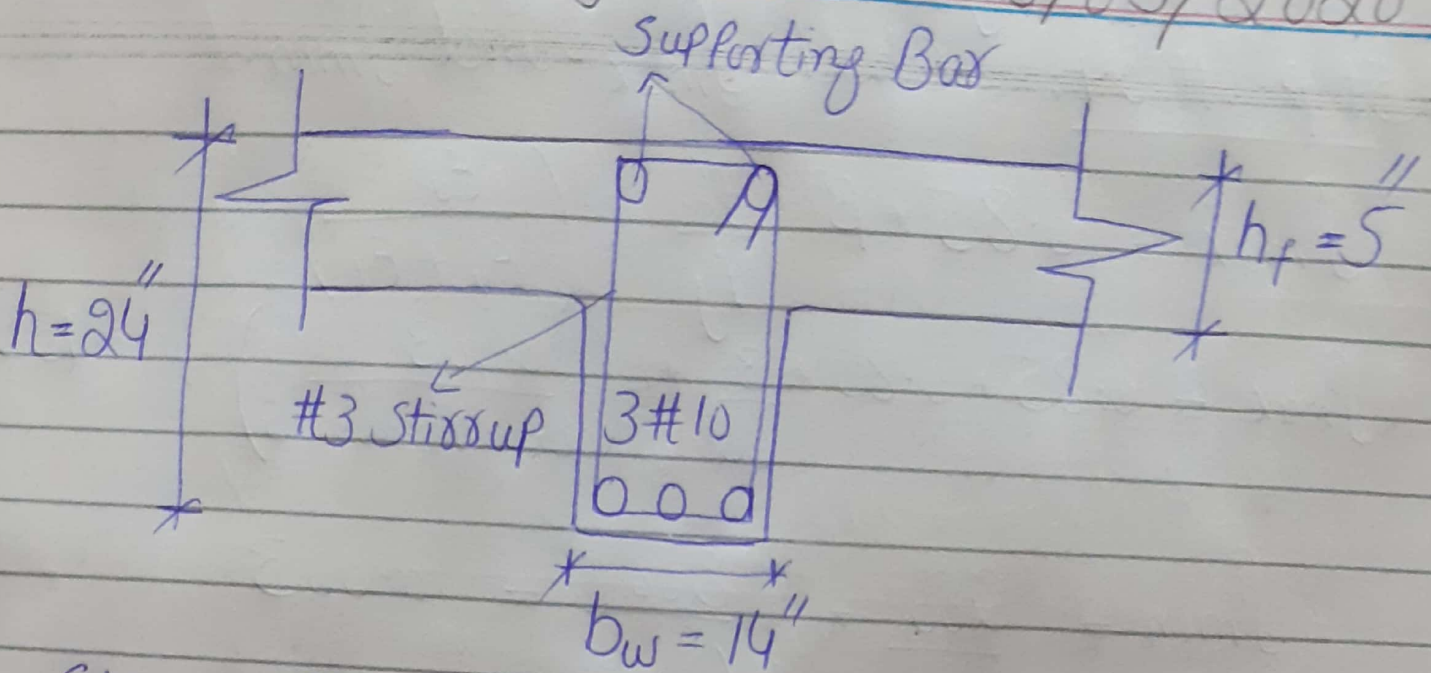 Supporting Bar
h=24"
h_f = 5"
#3 Stirrup
3#10
b_w = 14"